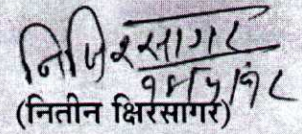 निक्षिरसागर
१५/५/१८
(नितीन क्षिरसागर)